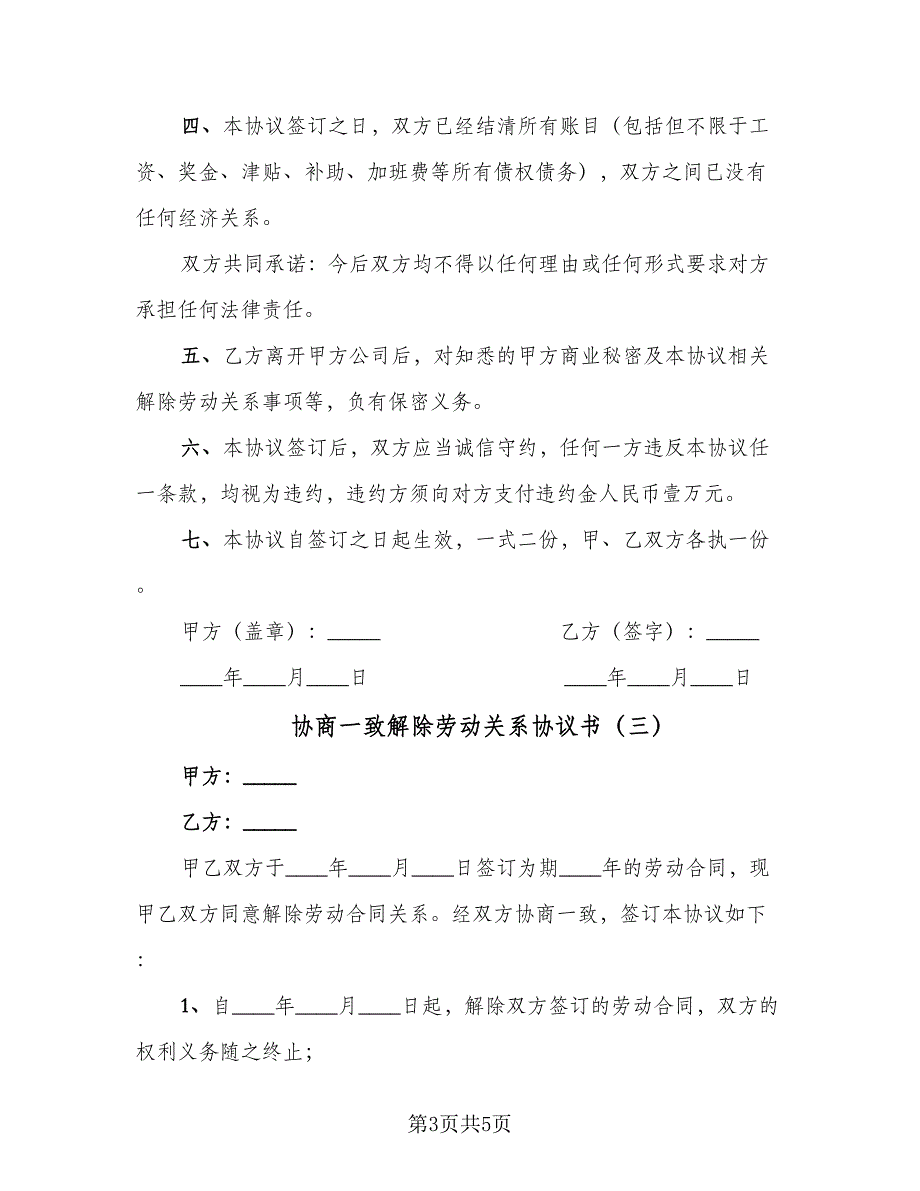 四、本协议签订之日，双方已经结清所有账目（包括但不限于工
资、奖金、津贴、补助、加班费等所有债权债务），双方之间已没有
任何经济关系。
双方共同承诺：今后双方均不得以任何理由或任何形式要求对方
承担任何法律责任。
五、乙方离开甲方公司后，对知悉的甲方商业秘密及本协议相关
解除劳动关系事项等，负有保密义务。
六、本协议签订后，双方应当诚信守约，任何一方违反本协议任
一条款，均视为违约，违约方须向对方支付违约金人民币壹万元。
七、本协议自签订之日起生效，一式二份，甲、乙双方各执一份
。
甲方（盖章）：_____ 乙方（签字）：_____
____年____月____日 ____年____月____日
协商一致解除劳动关系协议书（三）
甲方：_____
乙方：_____
甲乙双方于____年____月____日签订为期____年的劳动合同，现
甲乙双方同意解除劳动合同关系。经双方协商一致，签订本协议如下
：
1、自____年____月____日起，解除双方签订的劳动合同，双方的
权利义务随之终止；
第3页共5页